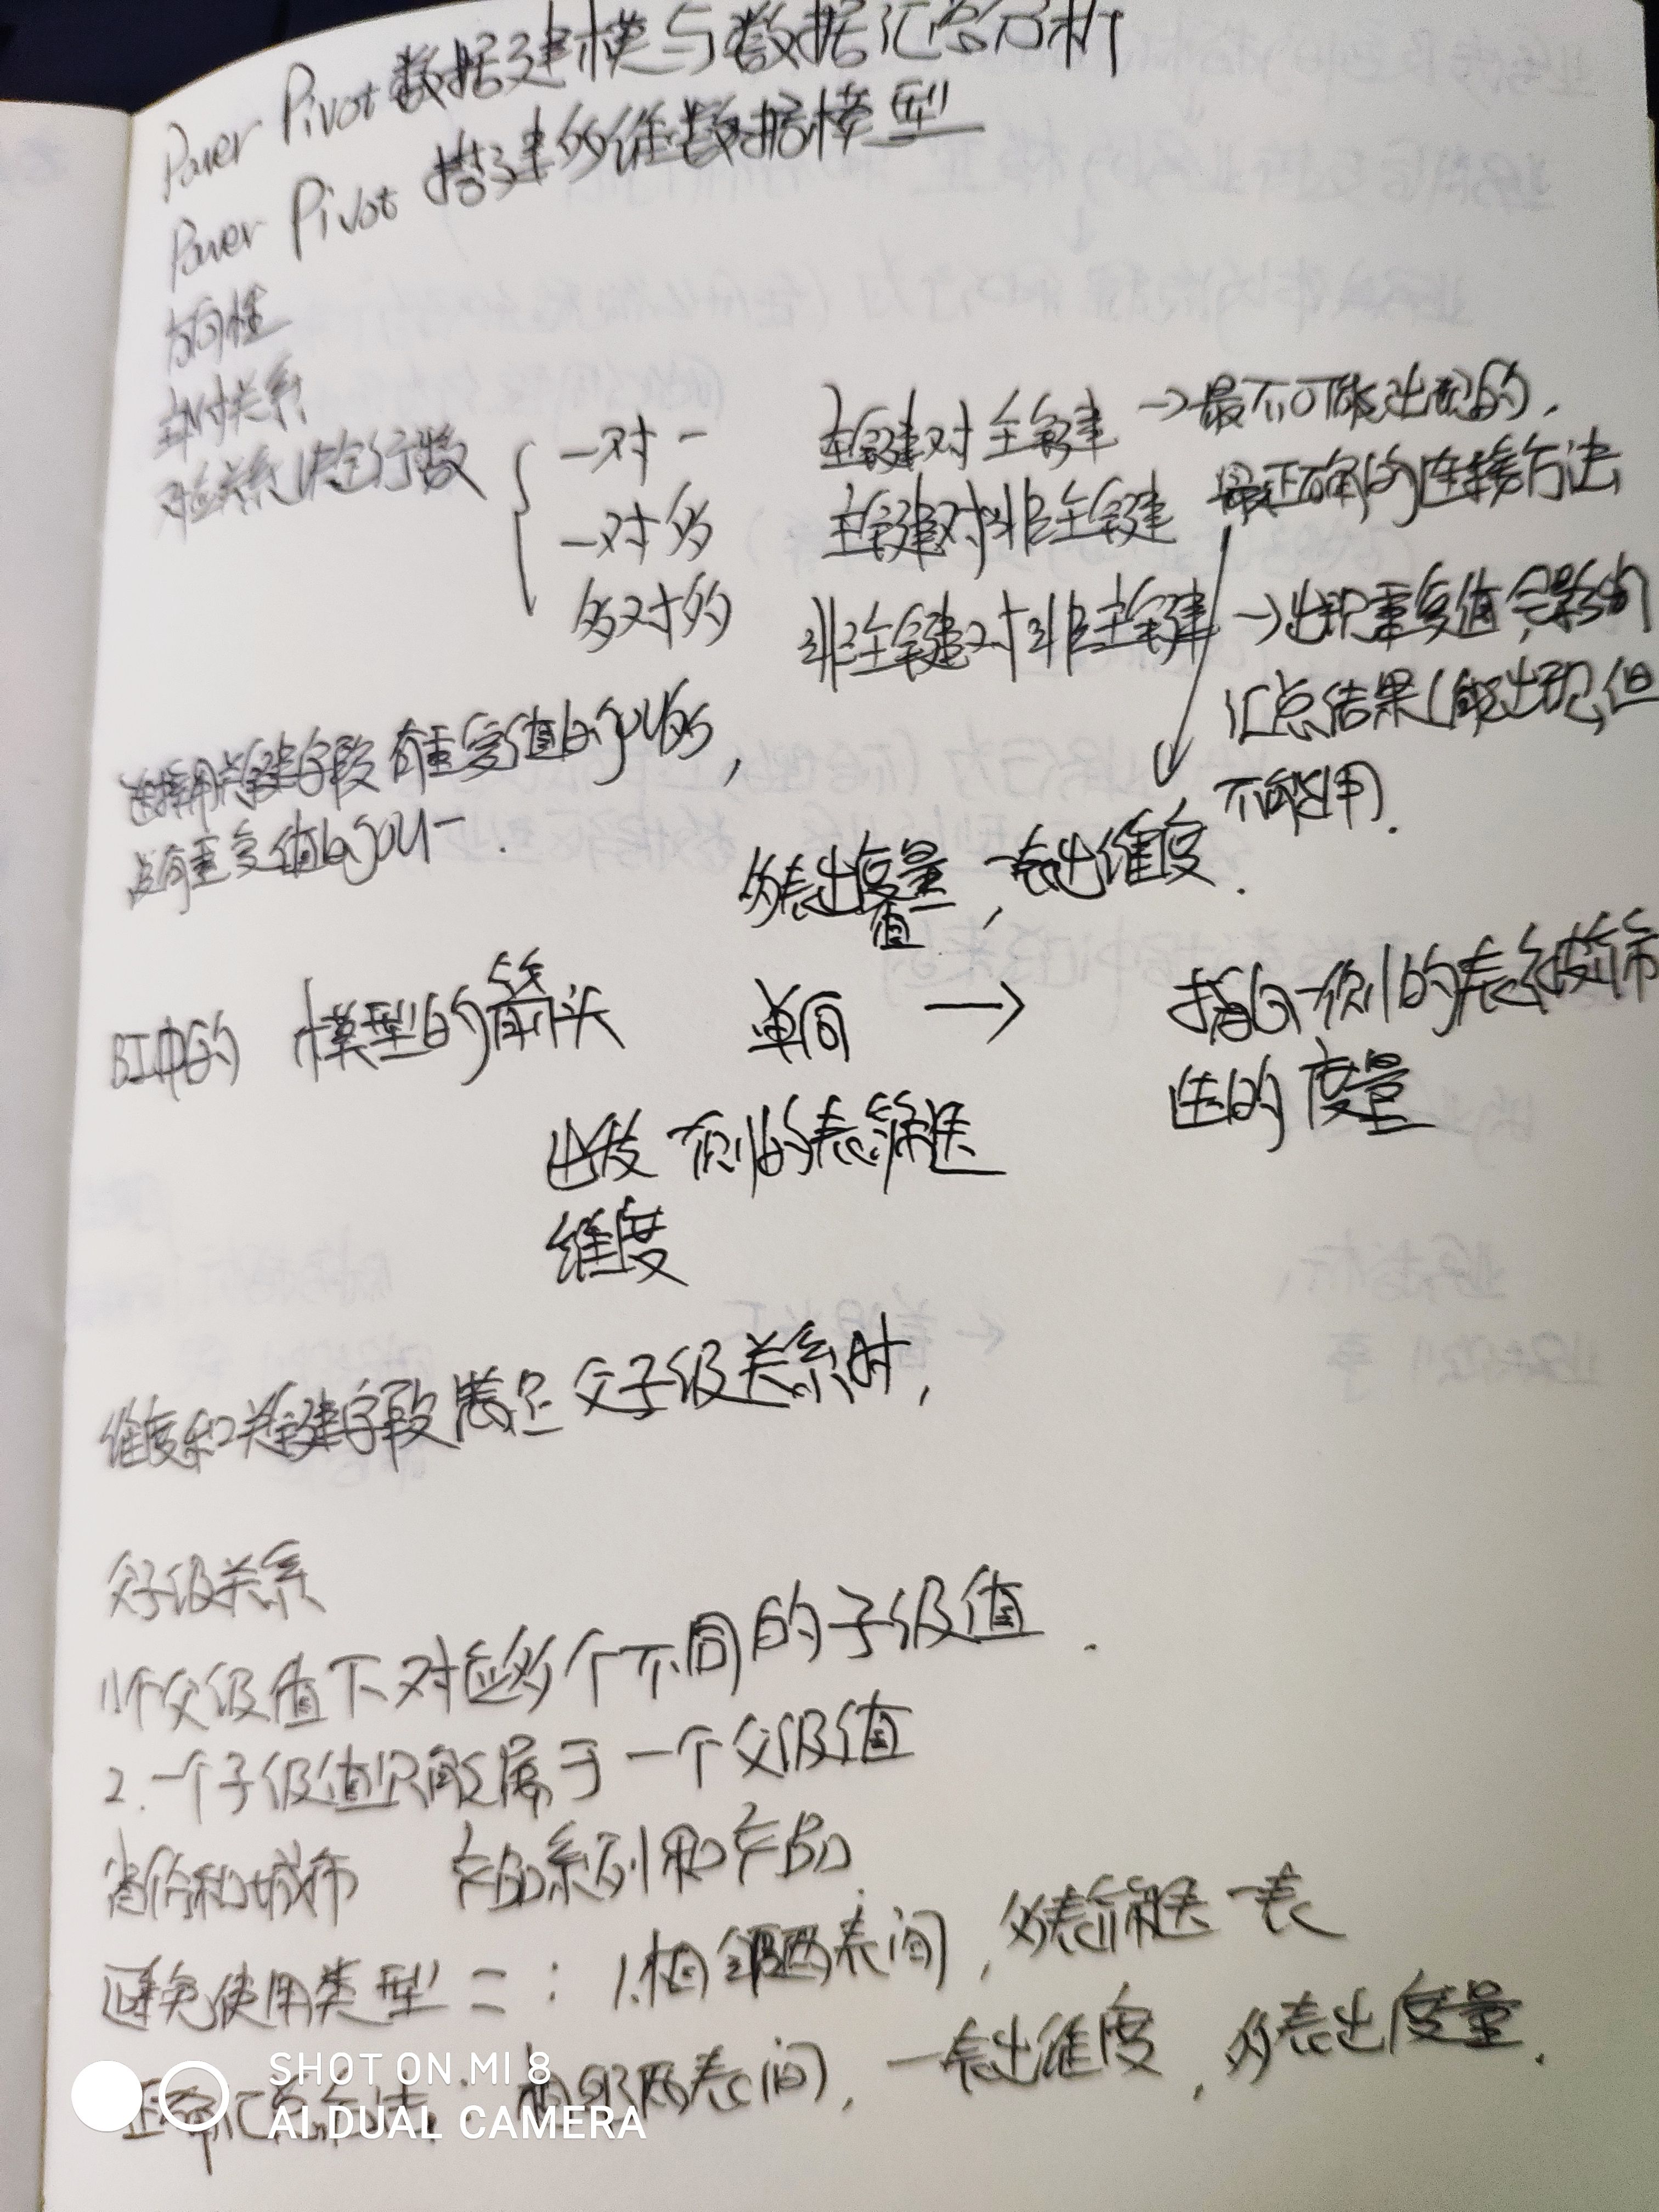 Power Pivot 数据建模与数据汇总分析
Power Pivot 搭建多维数据模型
方向性
主附关系
对应关系决定行数
一对一 主键对主键 →最不可能出现的.
一对多 主键对非主键 最正确的连接方法
多对多 非主键对非主键 →出现重复值,会影响
汇总结果(能出现,但
不能用).
连接用关键字段有重复值的为多,
没有重复值的为一.
多表出度量值,一表出维度.
BI中的 模型的箭头 单向 → 指向一侧的表被筛
选的度量
出发一侧的表筛选
维度
维度和关键字段满足父子级关系时,
父子级关系
1.一个父级值下对应多个不同的子级值.
2.一个子级值只能属于一个父级值
省份和城市 产品系列和产品
避免使用类型二: 1.相邻两表间,多表筛选一表
正确汇总方法: 相邻两表间,一表出维度,多表出度量.
SHOT ON MI 8
AI DUAL CAMERA